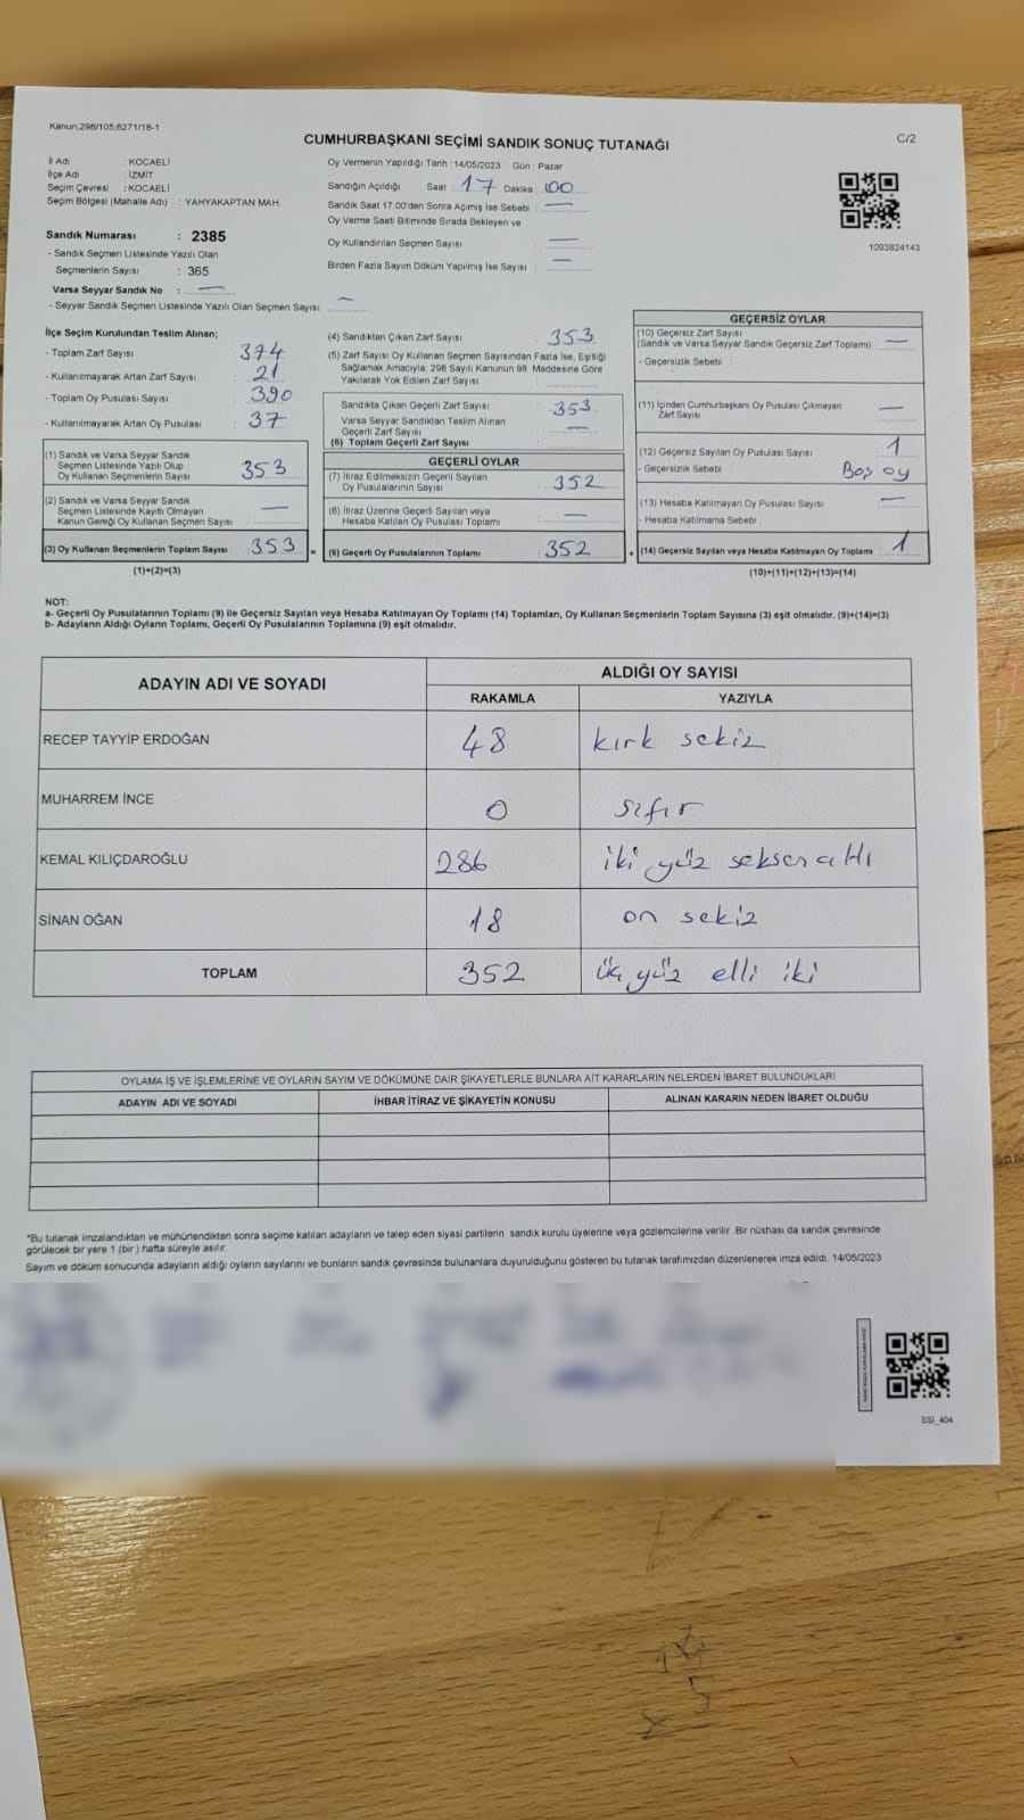 Kanun:298/105;6271/18-1
CUMHURBAŞKANI SEÇİMİ SANDIK SONUÇ TUTANAĞI
C/2
İl Adı KOCAELİ
İlçe Adı İZMİT
Seçim Çevresi : KOCAELİ
Seçim Bölgesi (Mahalle Adı) : YAHYAKAPTAN MAH.
Sandık Numarası : 2385
- Sandık Seçmen Listesinde Yazılı Olan
Seçmenlerin Sayısı : 365
Varsa Seyyar Sandık No : —
- Seyyar Sandık Seçmen Listesinde Yazılı Olan Seçmen Sayısı: —
Oy Vermenin Yapıldığı Tarih : 14/05/2023 Gün : Pazar
Sandığın Açıldığı Saat 17 Dakika 00
Sandık Saat 17.00'den Sonra Açımış İse Sebebi : —
Oy Verme Saati Bitiminde Sırada Bekleyen ve
Oy Kullandırılan Seçmen Sayısı —
Birden Fazla Sayım Döküm Yapılmış İse Sayısı —
1093824143
İlçe Seçim Kurulundan Teslim Alınan;
- Toplam Zarf Sayısı : 374
- Kullanılmayarak Artan Zarf Sayısı : 21
- Toplam Oy Pusulası Sayısı : 390
- Kullanılmayarak Artan Oy Pusulası : 37
(1) Sandık ve Varsa Seyyar Sandık
Seçmen Listesinde Yazılı Olup
Oy Kullanan Seçmenlerin Sayısı 353
(2) Sandık ve Varsa Seyyar Sandık
Seçmen Listesinde Kayıtlı Olmayan
Kanun Gereği Oy Kullanan Seçmen Sayısı —
(3) Oy Kullanan Seçmenlerin Toplam Sayısı 353 =
(1)+(2)=(3)
(4) Sandıktan Çıkan Zarf Sayısı 353
(5) Zarf Sayısı Oy Kullanan Seçmen Sayısından Fazla İse, Eşitliği
Sağlamak Amacıyla; 298 Sayılı Kanunun 98. Maddesine Göre
Yakılarak Yok Edilen Zarf Sayısı
Sandıkta Çıkan Geçerli Zarf Sayısı 353
Varsa Seyyar Sandıktan Teslim Alınan
Geçerli Zarf Sayısı —
(6) Toplam Geçerli Zarf Sayısı
GEÇERLİ OYLAR
(7) İtiraz Edilmeksizin Geçerli Sayılan
Oy Pusulalarının Sayısı 352
(8) İtiraz Üzerine Geçerli Sayılan veya
Hesaba Katılan Oy Pusulası Toplamı —
(9) Geçerli Oy Pusulalarının Toplamı 352 +
GEÇERSİZ OYLAR
(10) Geçersiz Zarf Sayısı
(Sandık ve Varsa Seyyar Sandık Geçersiz Zarf Toplamı) —
- Geçersizlik Sebebi
(11) İçinden Cumhurbaşkanı Oy Pusulası Çıkmayan
Zarf Sayısı —
(12) Geçersiz Sayılan Oy Pusulası Sayısı 1
- Geçersizlik Sebebi Boş oy
(13) Hesaba Katılmayan Oy Pusulası Sayısı —
- Hesaba Katılmama Sebebi
(14) Geçersiz Sayılan veya Hesaba Katılmayan Oy Toplamı 1
(10)+(11)+(12)+(13)=(14)
NOT:
a- Geçerli Oy Pusulalarının Toplamı (9) ile Geçersiz Sayılan veya Hesaba Katılmayan Oy Toplamı (14) Toplamları, Oy Kullanan Seçmenlerin Toplam Sayısına (3) eşit olmalıdır. (9)+(14)=(3)
b- Adayların Aldığı Oyların Toplamı, Geçerli Oy Pusulalarının Toplamına (9) eşit olmalıdır.
ADAYIN ADI VE SOYADI ALDIĞI OY SAYISI
RAKAMLA YAZIYLA
RECEP TAYYİP ERDOĞAN 48 kırk sekiz
MUHARREM İNCE 0 sıfır
KEMAL KILIÇDAROĞLU 286 iki yüz seksen altı
SİNAN OĞAN 18 on sekiz
TOPLAM 352 üç yüz elli iki
OYLAMA İŞ VE İŞLEMLERİNE VE OYLARIN SAYIM VE DÖKÜMÜNE DAİR ŞİKAYETLERLE BUNLARA AİT KARARLARIN NELERDEN İBARET BULUNDUKLARI
ADAYIN ADI VE SOYADI İHBAR İTİRAZ VE ŞİKAYETİN KONUSU ALINAN KARARIN NEDEN İBARET OLDUĞU
*Bu tutanak imzalandıktan ve mühürlendikten sonra seçime katılan adayların ve talep eden siyasi partilerin sandık kurulu üyelerine veya gözlemcilerine verilir. Bir nüshası da sandık çevresinde
görülecek bir yere 1 (bir) hafta süreyle asılır.
Sayım ve döküm sonucunda adayların aldığı oyların sayılarını ve bunların sandık çevresinde bulunanlara duyurulduğunu gösteren bu tutanak tarafımızdan düzenlenerek imza edildi. 14/05/2023